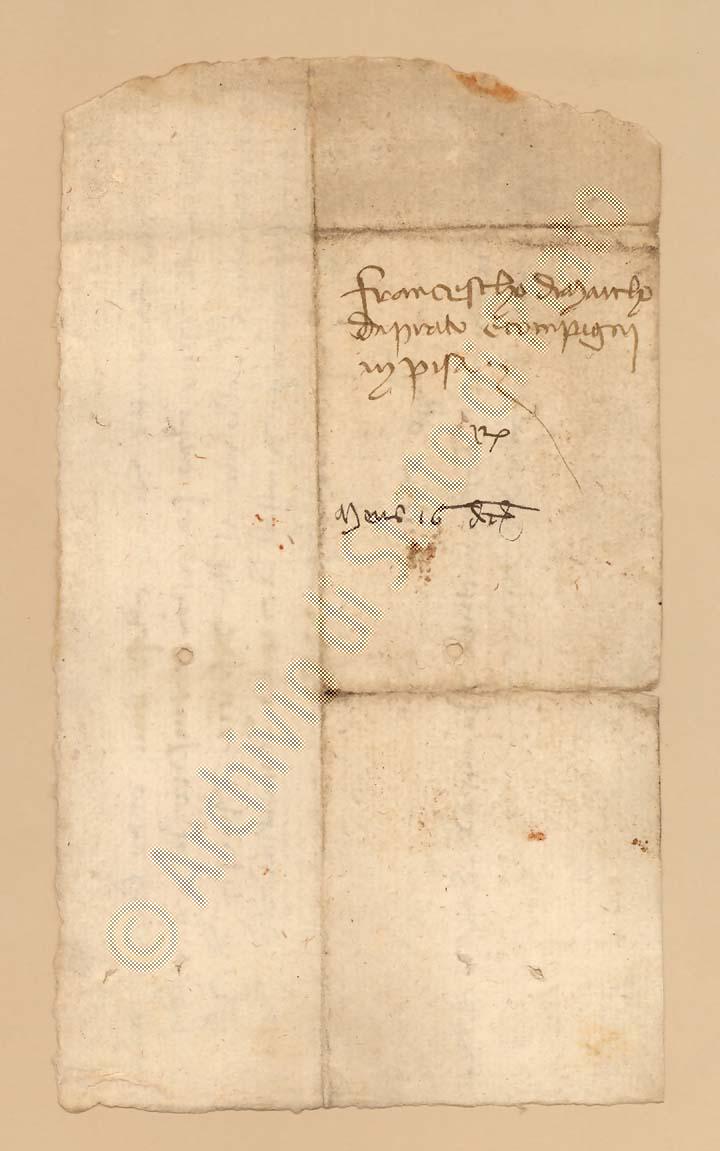 Francescho di Marcho
da prato e compagni
in pisa
16
© Archivio di Stato di Prato